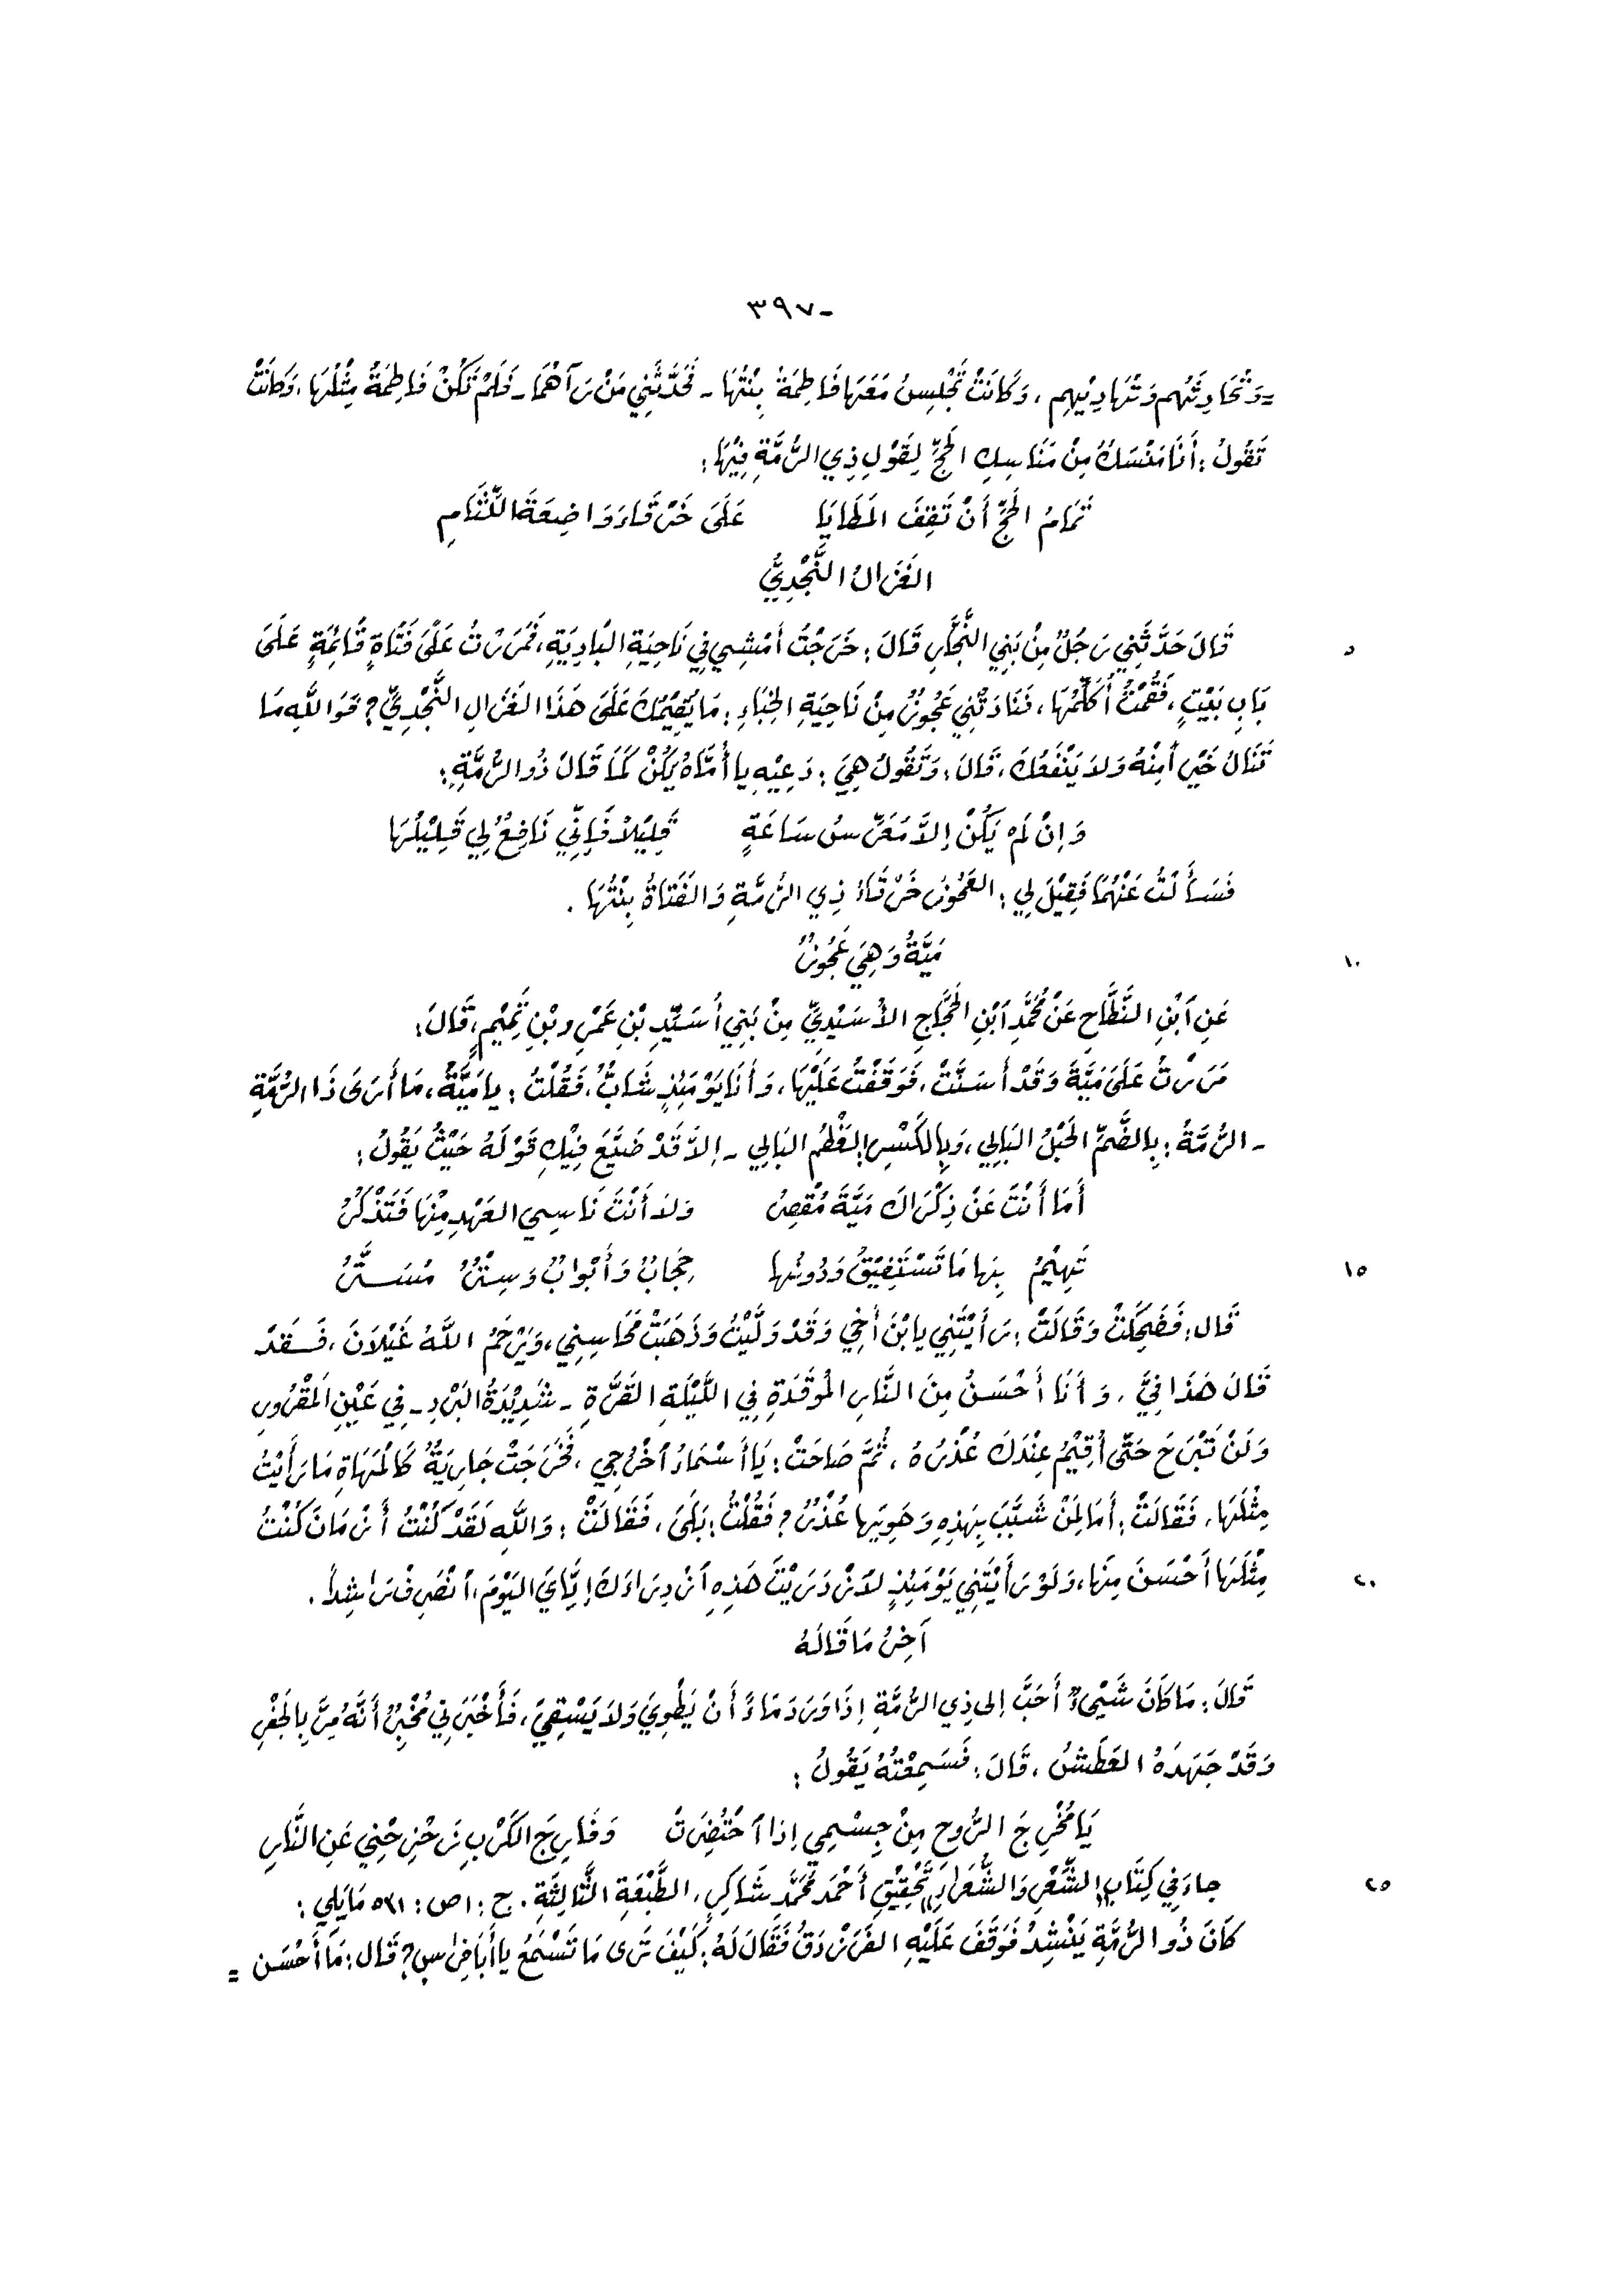 -٣٩٧
=وَتُحَادِثُهُم وَتُهَادِيْهِم، وَكَانَتْ تَجْلِسُ مَعَهَا فَاطِمَةُ بِنْتُهَا - فَحَدَّثَنِي مَنْ رَآهُمَا - فَلَمْ تَكُنْ فَاطِمَةُ مِثْلَهَا، وَكَانَتْ
تَقُولُ: أَنَا مَنْسَكٌ مِنْ مَنَاسِكِ الحَجِّ لِقَوْلِ ذِي الرُّمَّةِ فِيْهَا:
تَمَامُ الحَجِّ أَنْ تَقِفَ المَطَايَا    عَلَى خَرْقَاءَ وَاضِعَةَ اللِّثَامِ
الغَزَالُ النَّجْدِيُّ
٥ قَالَ حَدَّثَنِي رَجُلٌ مِنْ بَنِي النَّجَّارِ قَالَ: خَرَجْتُ أَمْشِي فِي نَاحِيَةِ البَادِيَةِ، فَمَرَرْتُ عَلَى فَتَاةٍ قَائِمَةٍ عَلَى
بَابِ بَيْتٍ، فَقُمْتُ أُكَلِّمُهَا، فَنَادَتْنِي عَجُوزٌ مِنْ نَاحِيَةِ الخِبَاءِ: مَا يُقِيْمُكَ عَلَى هَذَا الغَزَالِ النَّجْدِيِّ؟ فَوَاللَّهِ مَا
تَنَالُ خَيْراً مِنْهُ وَلاَ يَنْفَعُكَ، قَالَ: وَتَقُولُ هِيَ: دَعِيْهِ يا أُمَّاهُ يَكُنْ كَمَا قَالَ ذُو الرُّمَّةِ:
وَإِنْ لَمْ يَكُنْ إِلاَّ مُعَرَّسُ سَاعَةٍ    قَلِيْلاً فَإِنِّي نَافِعٌ لِي قَلِيْلُهَا
فَسَأَلْتُ عَنْهُمَا فَقِيْلَ لِي: العَجُوزُ خَرْقَاءُ ذِي الرُّمَّةِ وَالفَتَاةُ بِنْتُهَا.
١٠ مَيَّةُ وَهِيَ عَجُوزٌ
عَنِ ابْنِ النَّطَّاحِ عَنْ مُحَمَّدِ ابْنِ الحَجَّاجِ الأُسَيْدِيِّ مِنْ بَنِي أُسَيِّدِ بْنِ عَمْرِو بْنِ تَمِيْمٍ، قَالَ:
مَرَرْتُ عَلَى مَيَّةَ وَقَدْ أَسَنَّتْ، فَوَقَفْتُ عَلَيْهَا، وَأَنَا يَوْمَئِذٍ شَابٌّ، فَقُلْتُ: يا مَيَّةُ، مَا أَرَى ذَا الرُّمَّةِ
- الرُّمَّةُ: بِالضَّمِّ الحَبْلُ البَالِي، وَبِالكَسْرِ العَظْمُ البَالِي - إِلاَّ قَدْ ضَيَّعَ فِيْكِ قَوْلَهُ حَيْثُ يَقُولُ:
أَمَا أَنْتَ عَنْ ذِكْرَاكَ مَيَّةَ مُقْصِرُ    وَلاَ أَنْتَ نَاسِي العَهْدِ مِنْهَا فَتَذْكُرُ
١٥ تَهِيْمُ بِهَا مَا تَسْتَفِيْقُ وَدُونَهَا    حِجَابٌ وَأَبْوَابٌ وَسِتْرٌ مُسَتَّرُ
قَال: فَضَحِكَتْ وَقَالَتْ: رَأَيْتَنِي يا بْنَ أَخِي وَقَدْ وَلَّيْتُ وَذَهَبَتْ مَحَاسِنِي، وَيَرْحَمُ اللَّهُ غَيْلاَنَ، فَـقَدْ
قَالَ هَذَا فِيَّ، وَأَنَا أَحْسَنُ مِنَ النَّارِ المُوقَدَةِ فِي اللَّيْلَةِ القَرَّةِ - شَدِيْدَةُ البَرْدِ - فِي عَيْنِ المَقْرُورِ
وَلَنْ تَبْرَحَ حَتَّى أُقِيْمَ عِنْدَكَ عُذْرَهُ، ثُمَّ صَاحَتْ: يَا أَسْمَاءُ اخْرُجِي، فَخَرَجَتْ جَارِيَةٌ كَالمَهَاةِ مَا رَأَيْتُ
مِثْلَهَا، فَقَالَتْ: أَمَا لِمَنْ شَبَّبَ بِهَذِهِ وَهَوِيَها عُذْرٌ؟ فَقُلْتُ: بَلَى، فَقَالَتْ: وَاللَّهِ لَقَدْ كُنْتُ أَزْمَانَ كُنْتُ
٢٠ مِثْلَهَا أَحْسَنَ مِنْهَا، وَلَوْ رَأَيْتَنِي يَوْمَئِذٍ لاَزْدَرَيْتَ هَذِهِ ازْدِرَاءَكَ إِيَّايَ اليَوْمَ، انْصَرِفْ رَاشِداً.
آخِرُ مَا قَالَهُ
قَالَ: مَا كَانَ شَيْءٌ أَحَبَّ إِلى ذِي الرُّمَّةِ إِذَا وَرَدَ مَاءً أَنْ يَطْوِيَ وَلاَ يَسْقِيَ، فَأَخْبَرَنِي مُخْبِرٌ أَنَّهُ مَرَّ بِالجَفْرِ
وَقَدْ جَهَدَهُ العَطَشُ، قَالَ: فَسَمِعْتُهُ يَقُولُ:
يَا مُخْرِجَ الرُّوحِ مِنْ جِسْمِي إِذَا احْتُضِرَتْ    وَفَارِجَ الكَرْبِ زَحْزِحْنِي عَنِ النَّارِ
٢٥ جاءَ فِي كِتَابِ "الشِّعْرِ وَالشُّعَرَاءِ" تَحْقِيْقِ أَحْمَد مُحَمَّد شَاكِرٍ، الطَّبْعَةِ الثَّالِثَةِ. ج: ١ ص: ٥٦١ مَا يَلِي:
كَانَ ذُو الرُّمَّةِ يَنْشِدُ فَوَقَفَ عَلَيْهِ الفَرَزْدَقُ فَقَالَ لَهُ: كَيْفَ تَرَى مَا تَسْمَعُ يا أَبَا فِرَاسٍ؟ قَال: مَا أَحْسَن =